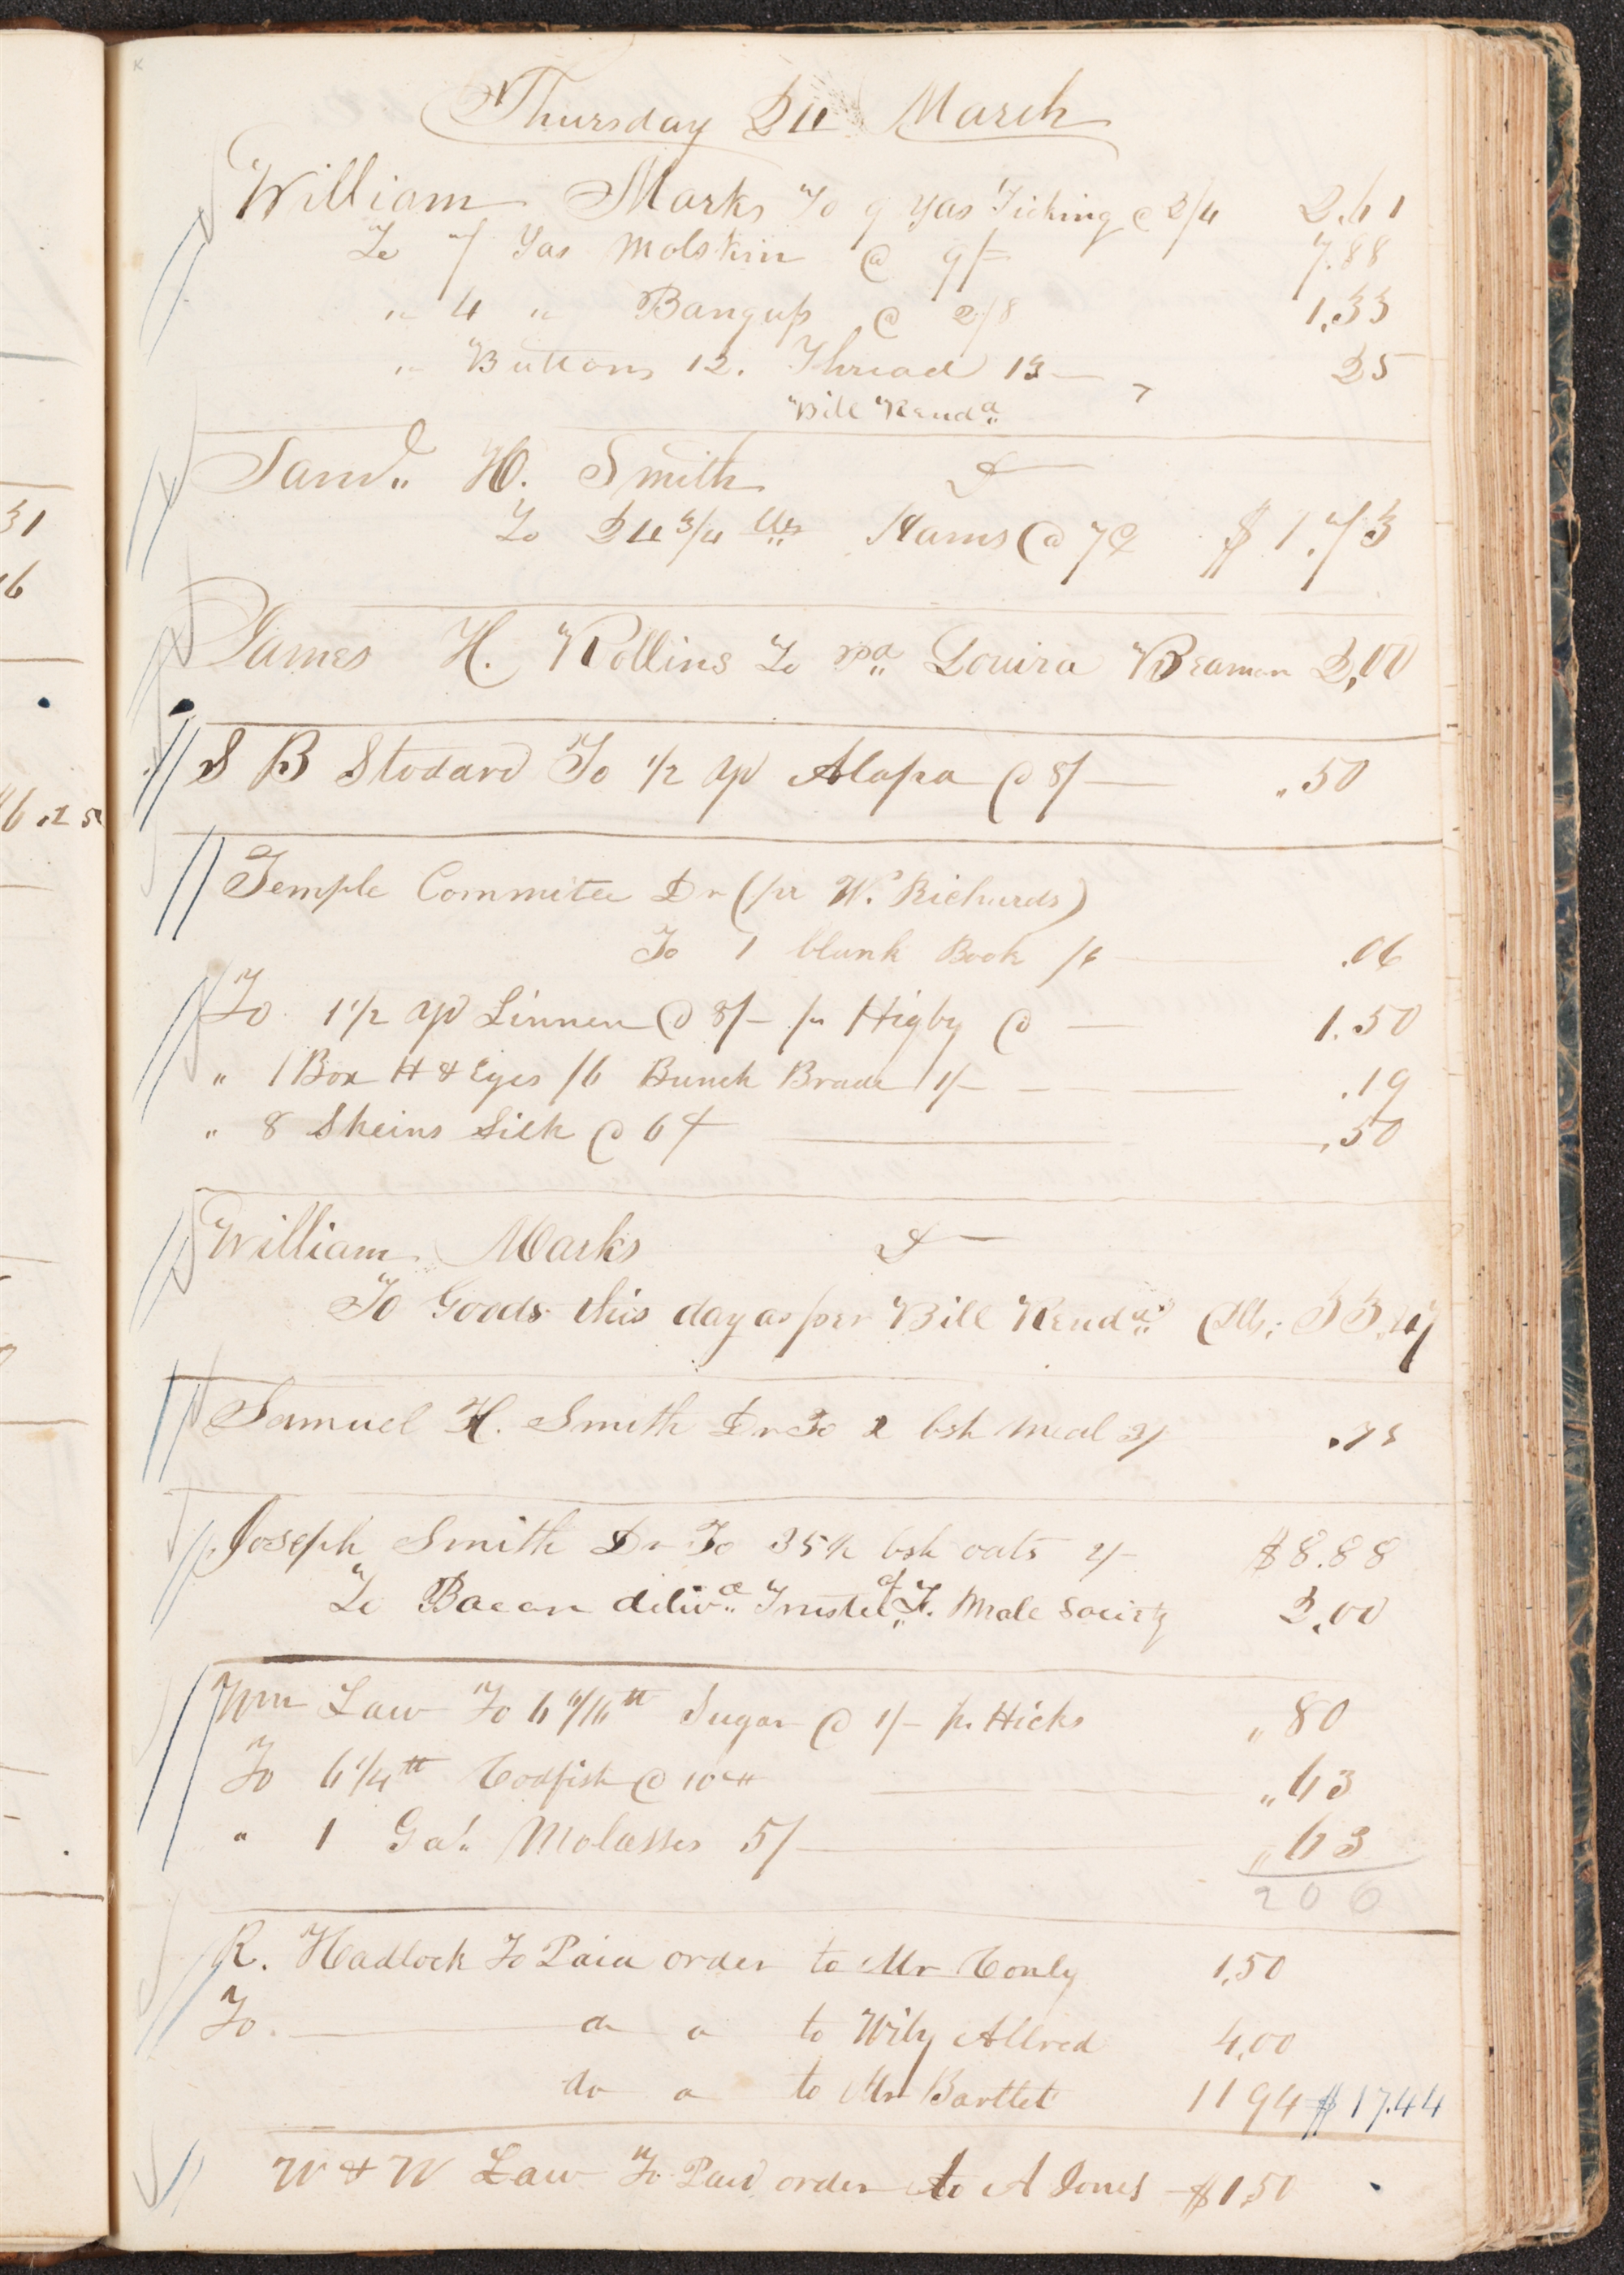 31
16
46.25
Thursday 24 March
William Marks To 9 Yds Ticking @ 2/4 2.61
To 7 Yds Molskin @ 9/- 7.88
" 4 " Bangup @ 2/8 1.33
" Buttons 12. Thread 13 25
Bill Rendd
Saml. H. Smith Dr
To 24 3/4 lbs Hams @ 7¢ $1.73
James H. Rollins To pd Louira Beaman 2,00
S B Stodard To 1/2 yd Alapa @ 8/- .50
Temple Commitee Dr (pr W. Richards)
To 1 blank Book /6 .06
To 1 1/2 yd Linnen @ 8/- pr Higby @ 1.50
" 1 Box H & Eyes /6 Bunch Brade 1/- .19
" 8 Skeins Silk @ 6¢ .50
William Marks Dr
To Goods this day as per Bill Rendd 33.47
Samuel H. Smith Dr To 2 bsh Meal 3/ .75
Joseph Smith Dr To 35 1/2 bsh oats 2/- $8.88
To Bacon delivd Trustee of F. Male Society 2.00
Wm Law To 6 6/16 tt Sugar @ 1/- pr Hicks " 80
To 6 1/4 tt Codfish @ 10 " 63
" 1 Gal. Molasses 5/- " 63
206
R. Hadlock To Paid order to Mr Conly 1,50
To do a to Wily Allred 4,00
do a to Mr Bartlet 11 94 $17.44
W & W Law To Paid order to A Jones $1,50